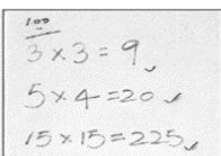 100
3×3=9
5×4=20
15×15=225